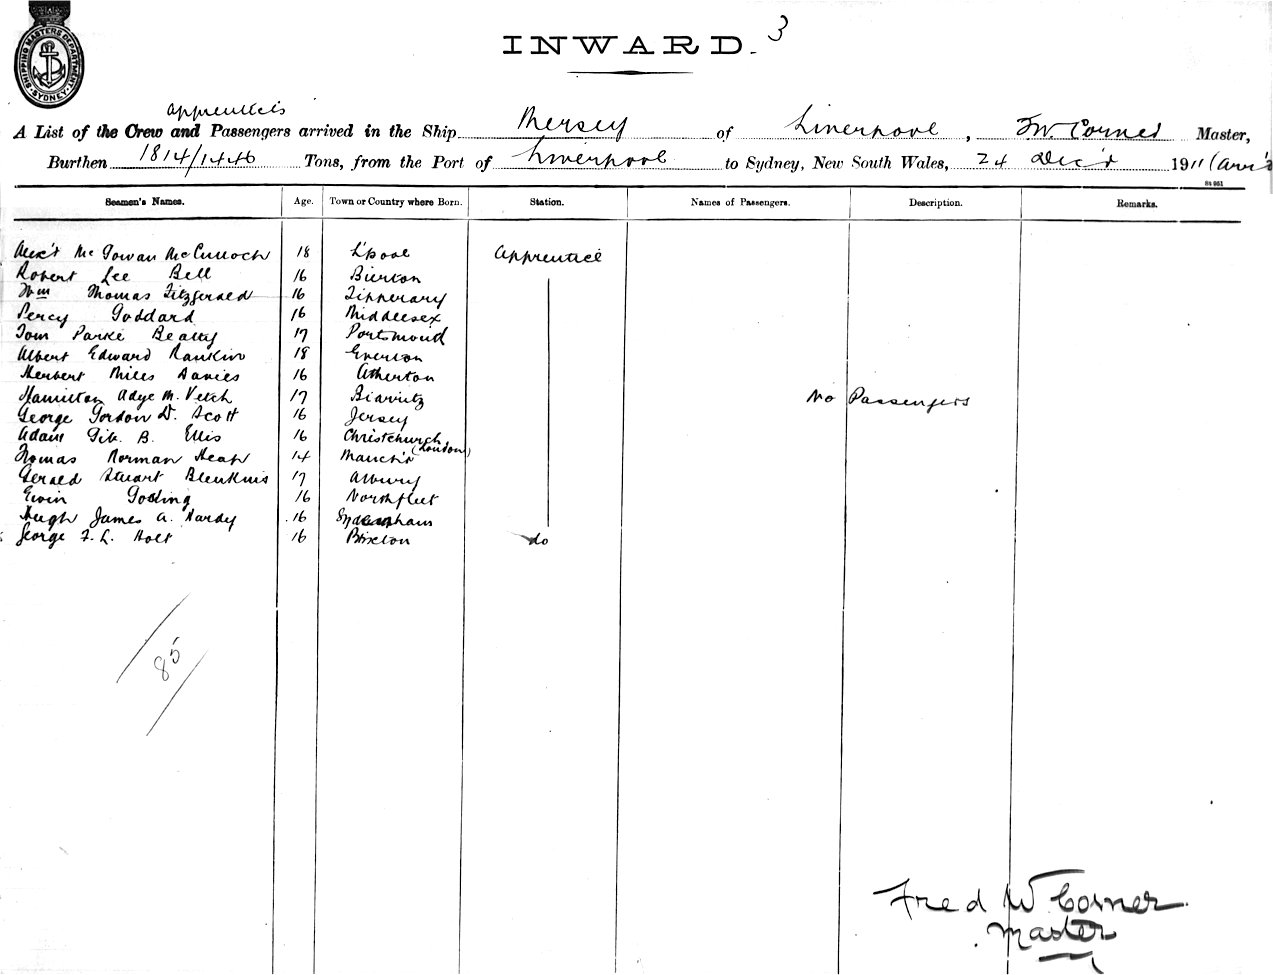 SHIPPING MASTERS DEPARTMENT SYDNEY
INWARD. 3
apprentices
A List of the Crew and Passengers arrived in the Ship Mersey of Liverpool, F W Corner Master,
Burthen 1814/1446 Tons, from the Port of Liverpool to Sydney, New South Wales, 24 Dec'r 1911 (Arr'd
Seamen's Names. Age. Town or Country where Born. Station. Names of Passengers. Description. Remarks.
Alex'r McGowan McCulloch 18 L'pool Apprentice
Robert Lee Bell 16 Burton
Wm Thomas Fitzgerald 16 Tipperary
Percy Goddard 16 Middlesex
Tom Parke Beatty 17 Portsmouth
Albert Edward Rankin 18 Everton
Herbert Miles Davies 16 Atherton
Hamilton Adye M. Vetch 17 Biarritz No Passengers
George Gordon D. Scott 16 Jersey
Adam Gib. B. Ellis 16 Christchurch
Thomas Norman Heap 14 Manch'r (London)
Gerald Stuart Blenkins 17 Albury
Ewin Gosling 16 Northfleet
Hugh James A. Hardy 16 Sydenham
George F. L. Holt 16 Brixton do
85
Fred W Corner
Master